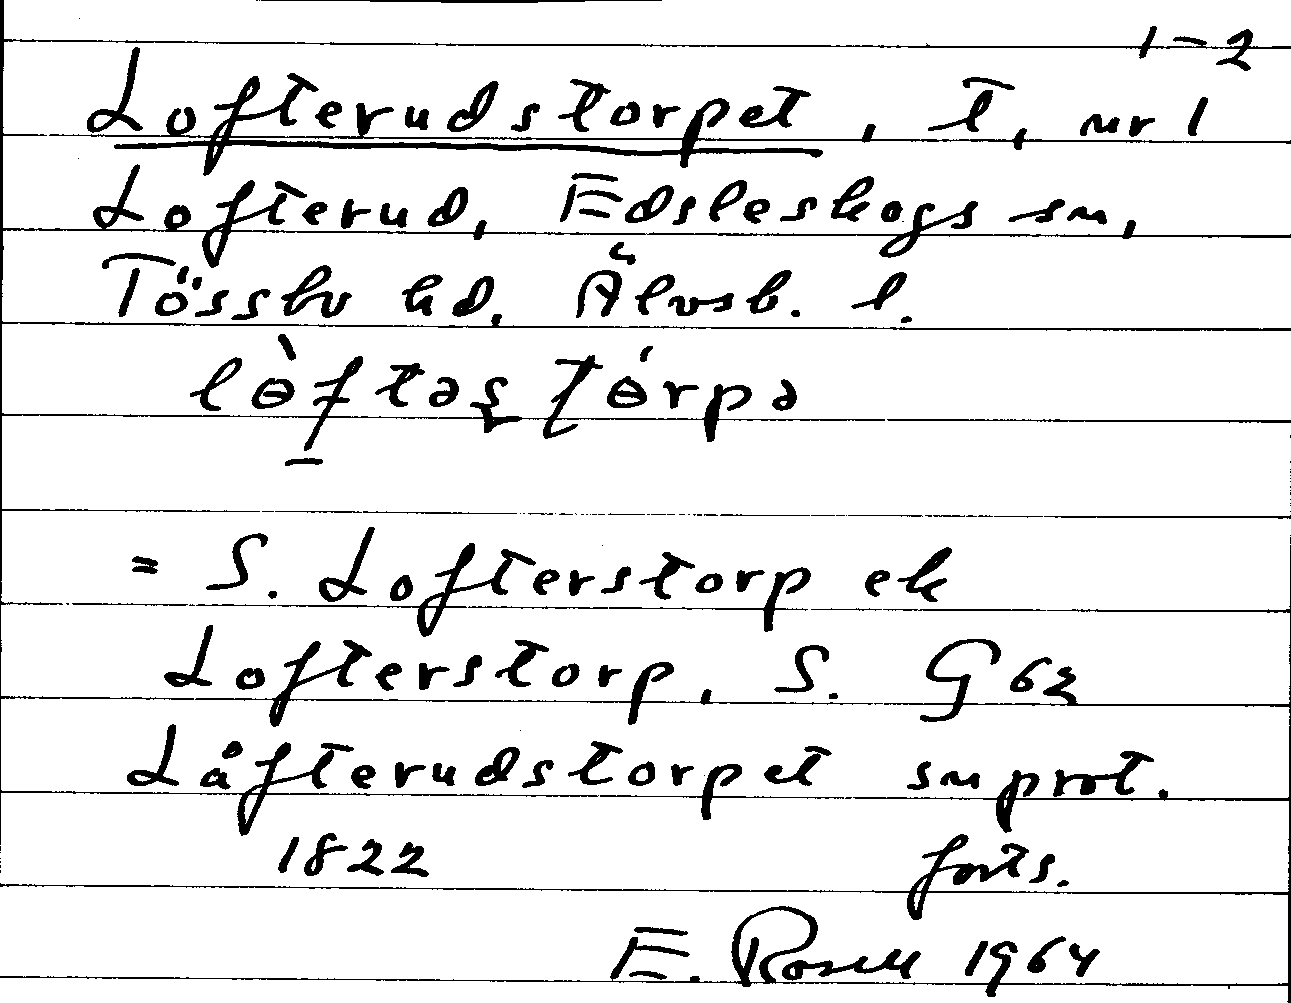 1-2
Lofterudstorpet, t, nr 1
Lofterud, Edsleskogs sn,
Tössbo hd. Älvsb. l.
lɵ̀ftəs̩ tɵ́rpə
= S. Lofterstorp ek
Lofterstorp, S. G 62
Låfterudstorpet snprot.
1822 forts.
E. Rosell 1964